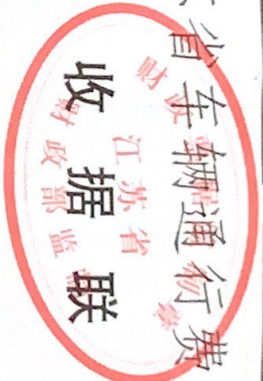 省车辆通行费
收据联
财政
江苏省
财政部监